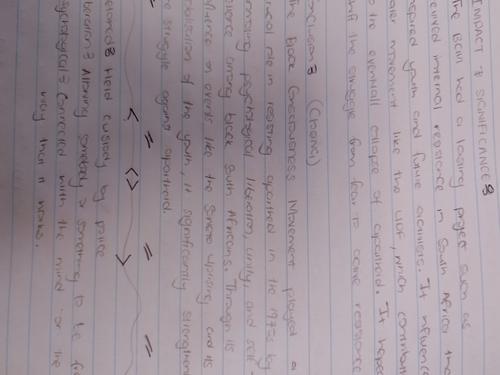 IMPACT & SIGNIFICANCE:
The BCM had a lasting such as
internal resistance in South Africa
inspired youth and future activists. It influence
movement like the UDF, which contribut
to the eventuall collapse of apartheid. It helped
shift the struggle from fear to active resistance
(Chanai)
The Black Consciousness Movement played a
role in resisting apartheid in the 1970s by
promoting psychological liberation, unity, and self-
among black South Africans. Through its
influence on events like the Soweto Uprising and its
of the youth, it significantly strengthen
the struggle against apartheid.
< = <> = > =
Held custody by police
Allowing somebody or something to be free
Psychological: Connected with the mind or the
way that it works.